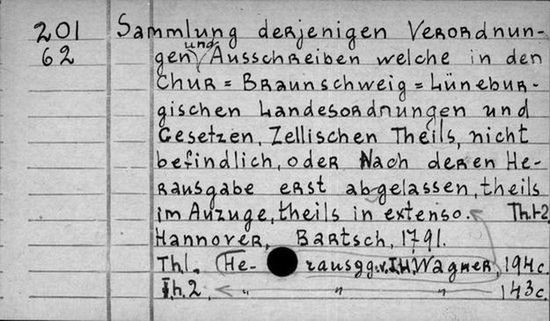 201 Sammlung derjenigen Verordnun-
62 gen und Ausschreiben welche in den
Chur = Braunschweig = Lünebur-
gischen Landesordnungen und
Gesetzen, Zellischen Theils, nicht
befindlich, oder Nach deren He-
rausgabe erst abgelassen, theils
im Auzuge, theils in extenso. Th.1-2
Hannover, Bartsch, 1791.
Th1. (He- rausgg.v.I.H.Wagner, 194 c.
Th.2 " " " 143 c.